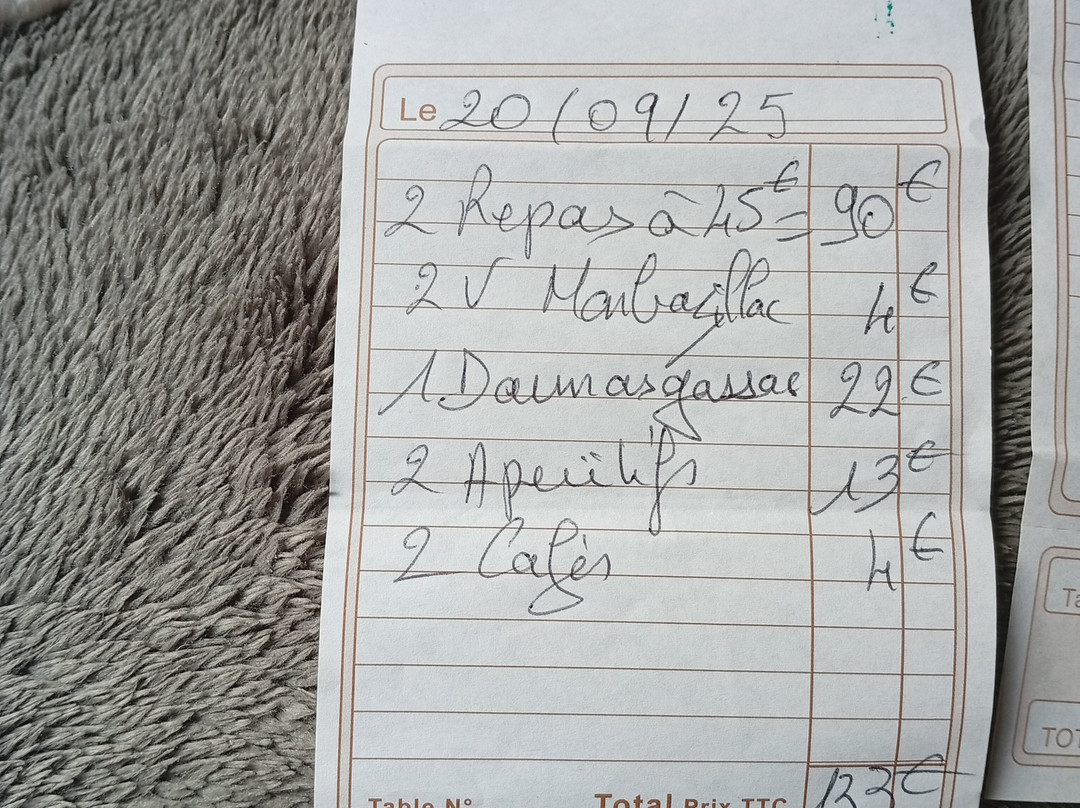 Le 20/09/25
2 Repas à 45€ = 90 €
2 V Monbazillac 4 €
1 Daumas gassac 22 €
2 Aperitifs 13 €
2 Cafés 4 €
Table N° Total Prix TTC 133€
Ta
TOT